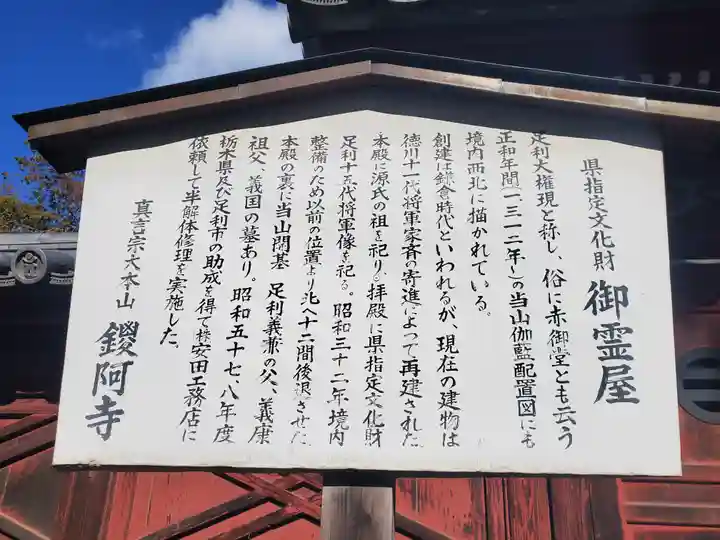 県指定文化財 御霊屋
足利大権現と称し、俗に赤御堂とも云う
正和年間(一三一二年〜)の当山伽藍配置図にも
境内西北に描かれている。
創建は鎌倉時代といわれるが、現在の建物は
徳川十一代将軍家斉の寄進によって再建された
本殿に源氏の祖を祀り、拝殿に県指定文化財
足利十五代将軍像を祀る。昭和三十二年境内
整備のため以前の位置より北へ十二間後退させた
本殿の裏に当山開基 足利義兼の父、義康
祖父、義国の墓あり。昭和五十七、八年度
栃木県及び足利市の助成を得て㈱安田工務店に
依頼して半解体修理を実施した。
真言宗大本山 鑁阿寺